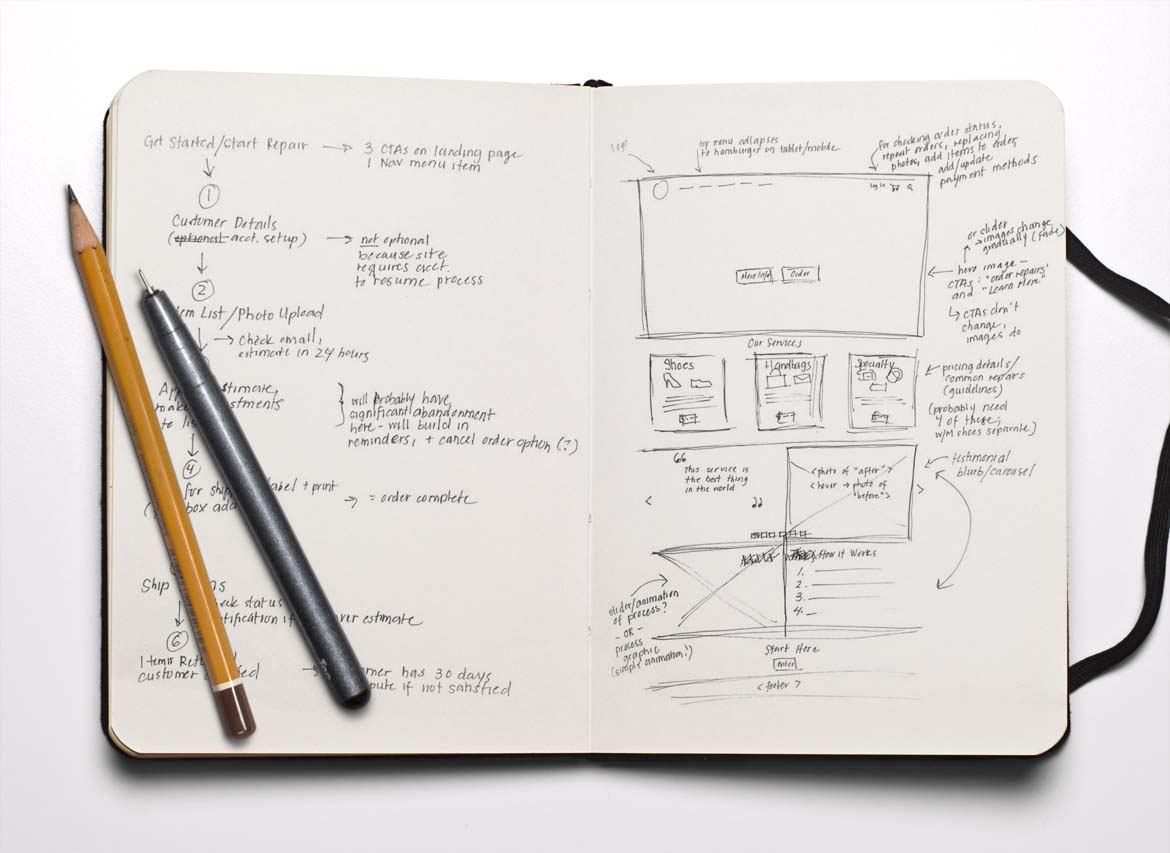 Get Started/Start Repair → 3 CTAs on landing page
1 Nav menu item
1
Customer Details
(optional acct. setup) → not optional
because site
requires acct.
to resume process
2
List/Photo Upload
→ Check email,
estimate in 24 hours
estimate,
to
will probably have
significant abandonment
here - will build in
reminders, + cancel order option (?)
4
for label + print
box → = order complete
Ship
status
if estimate
6
Items
customer
has 30 days
if not satisfied
logo
top menu collapses
to hamburger on tablet/mobile
for checking order status,
repeat orders, replacing
photos, add items to order,
add/update
payment methods
Log in
More Info
Order
or slider
→ images change
gradually (fade)
hero image -
CTAs: "order repairs"
and "Learn More"
↳ CTAs don't
change,
images do
Our Services
Shoes
Handbags
Specialty
pricing details/
common repairs
(guidelines)
(probably need
4 of these;
w/m shoes separate)
“
This service is
the best thing
in the world
”
<
<photo of "after">
<hover → photo of
"before">
>
testimonial
blurb/carousel
How it Works
1.
2.
3.
4.
slider/animation
of process?
- OR -
process
graphic
(simple animation?)
Start Here
enter
<footer>